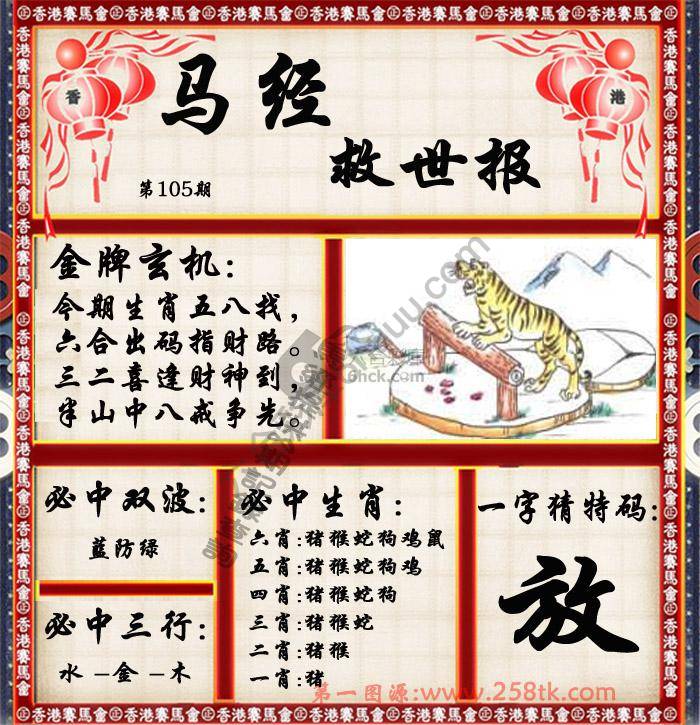 香港賽馬會㊣香港賽馬會㊣香港賽馬會㊣香港賽馬會㊣香港賽馬會㊣香港賽馬會㊣香港賽馬會
香
港
马经
救世报
第105期
金牌玄机:
今期生肖五八找,
六合出码指财路。
三二喜逢财神到,
半山中八戒争先。
必中双波:
蓝防绿
必中三行:
水-金-木
必中生肖:
六肖:猪猴蛇狗鸡鼠
五肖:猪猴蛇狗鸡
四肖:猪猴蛇狗
三肖:猪猴蛇
二肖:猪猴
一肖:猪
一字猜特码:
放
第一图源:www.258tk.com